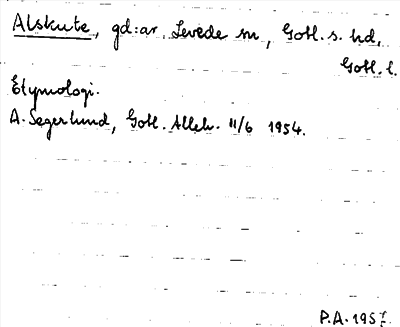 Alskute, gd:ar, Levede sn, Gotl. s. hd,
Gotl. l.
Etymologi.
A. Segerlund, Gotl. Alleh. 11/6 1954.
P.A. 195